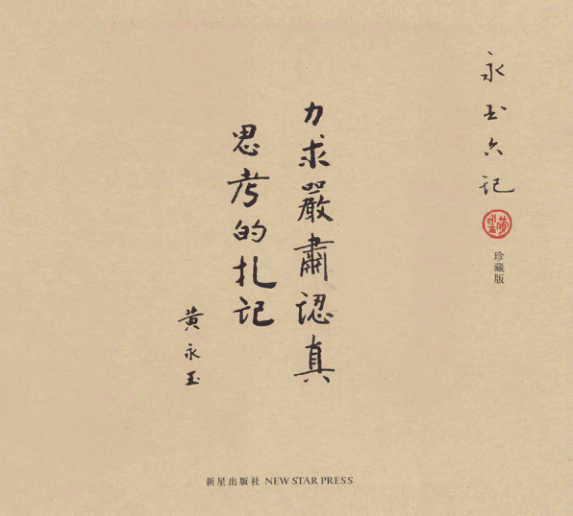 永玉六记
珍藏版
力求嚴肅認真
思考的扎记
黄永玉
新星出版社 NEW STAR PRESS